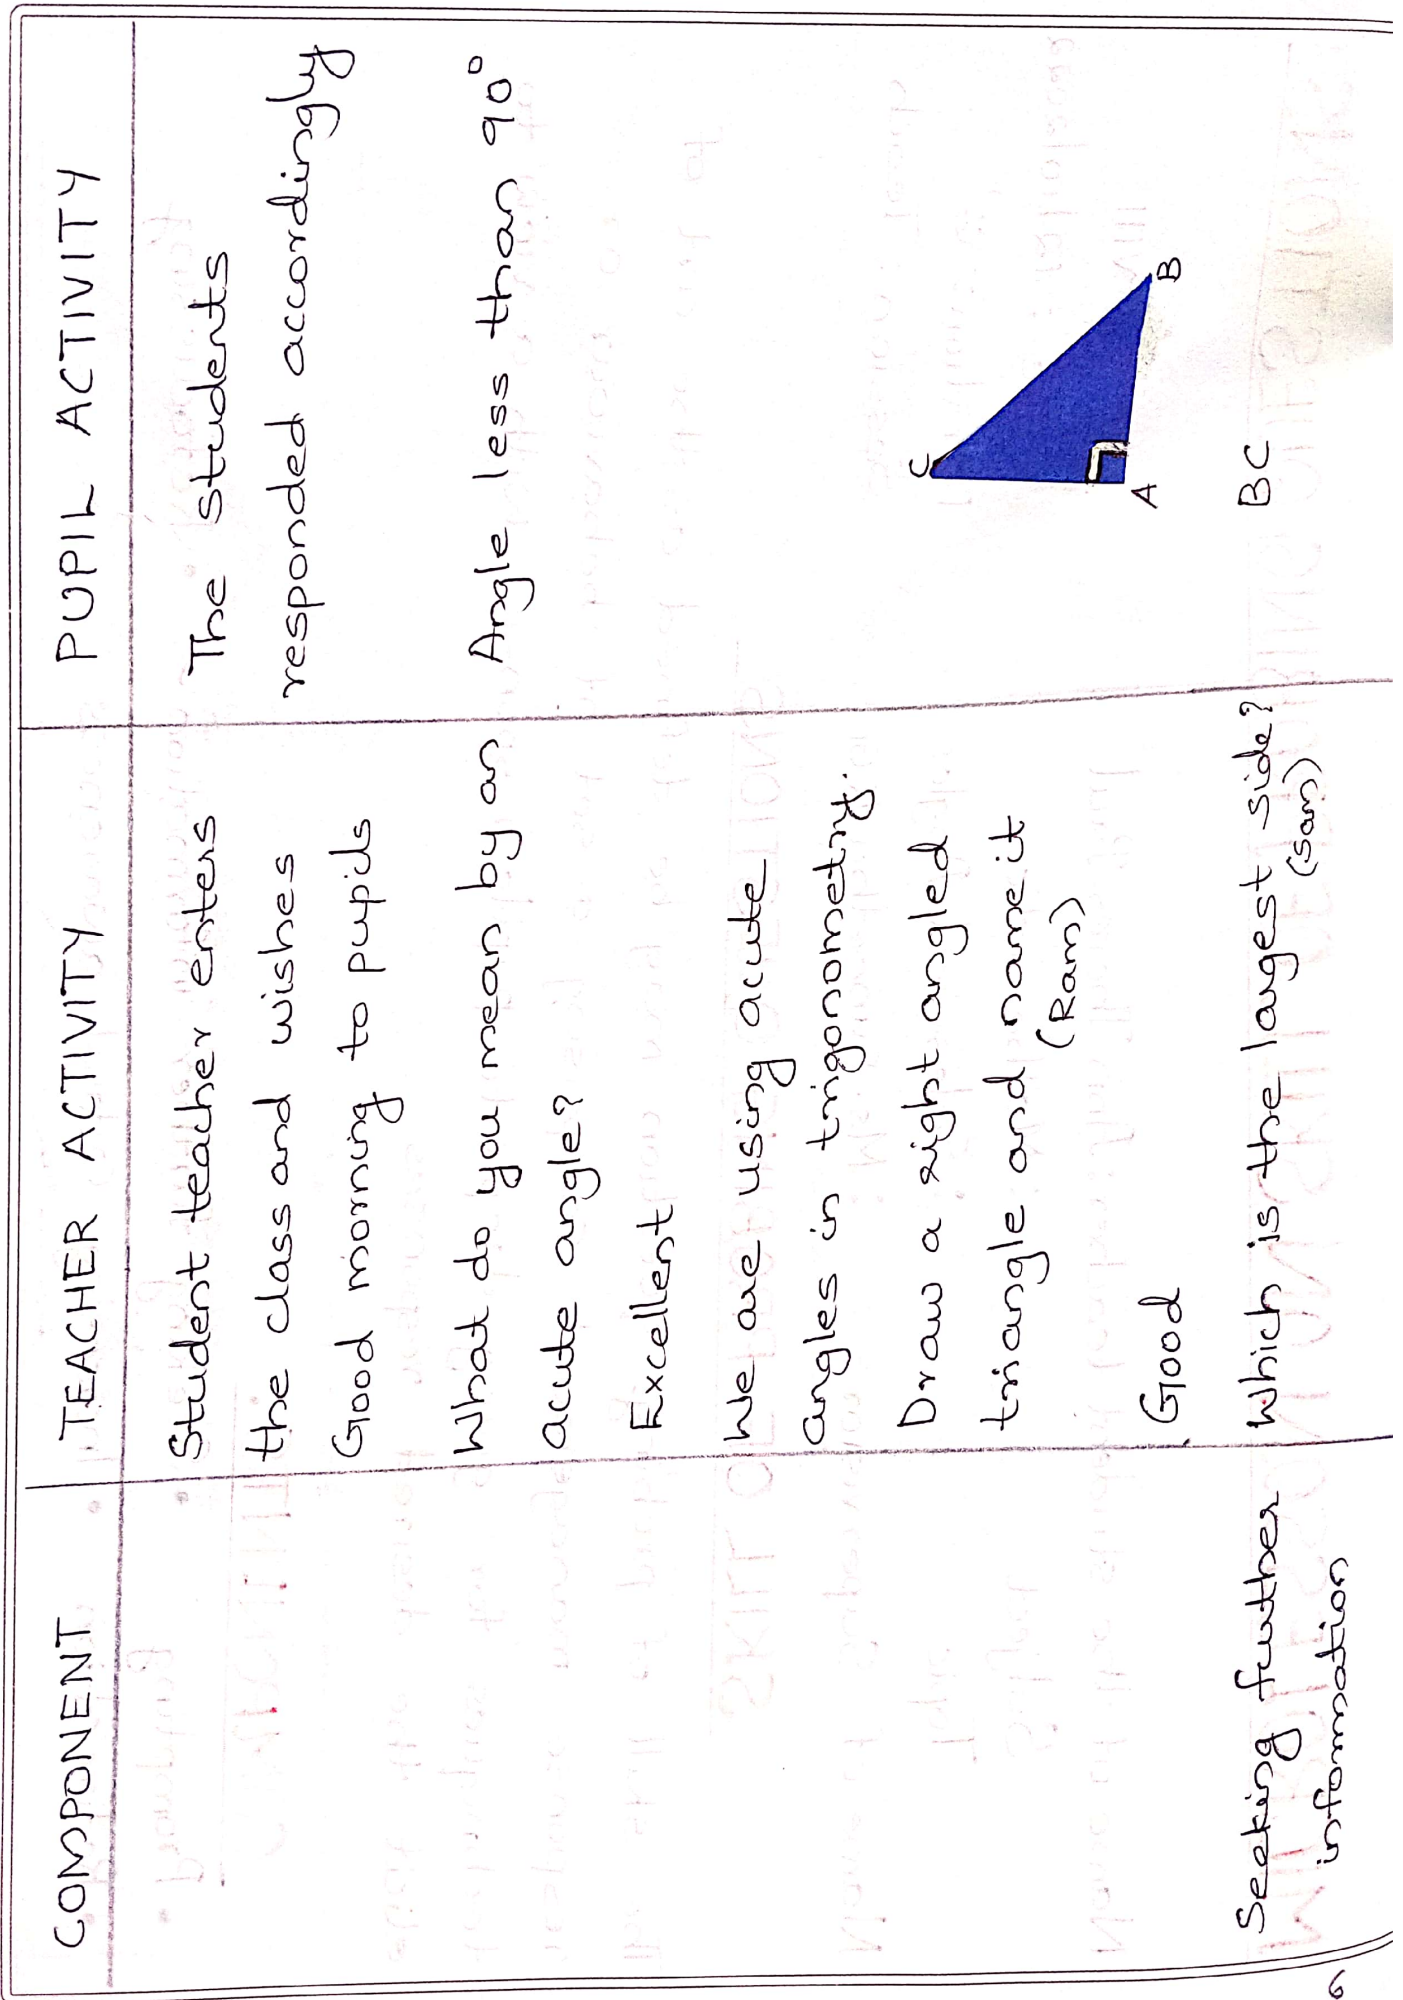 COMPONENT TEACHER ACTIVITY PUPIL ACTIVITY
Student teacher enters
the class and wishes
Good morning to pupils
The students
responded accordingly
What do you mean by an
acute angle?
Angle less than 90°
Excellent
We are using acute
angles in trigonometry.
Draw a right angled
triangle and name it
(Ram)
C
A
B
Good
Seeking further
information
Which is the largest side?
(Sam)
BC
6